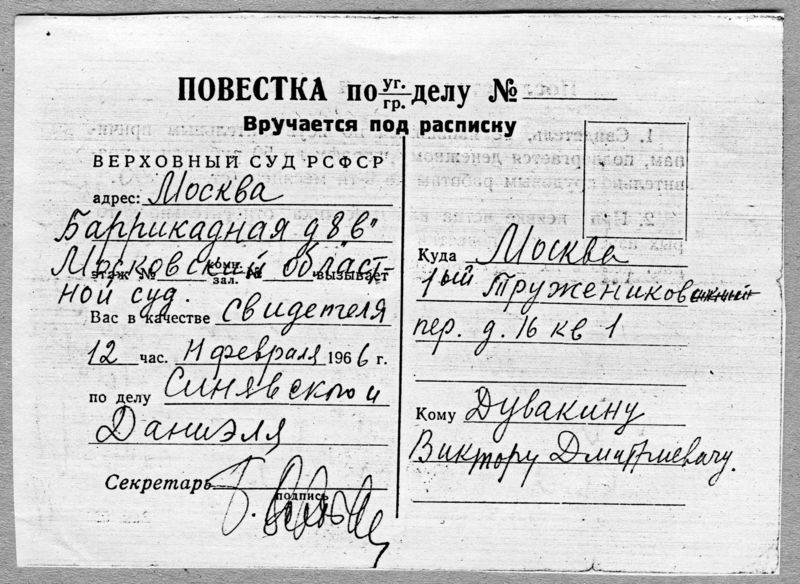 ПОВЕСТКА по уг./гр. делу №
Вручается под расписку
ВЕРХОВНЫЙ СУД РСФСР
адрес: Москва
Баррикадная д 8 "в"
Московский област-
этаж № комн./зал. № вызывает
ной суд.
Вас в качестве свидетеля
12 час. 11 февраля 1966 г.
по делу Синявского и
Даниэля
Секретарь
подпись
Куда Москва
1ый Тружеников
пер. д. 16 кв 1
Кому Дувакину
Виктору Дмитриевичу.